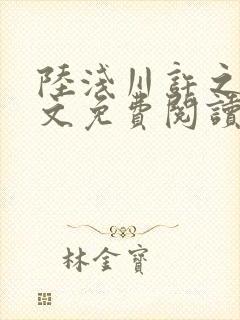 陸淺川許之
文免費閱讀
林金寶